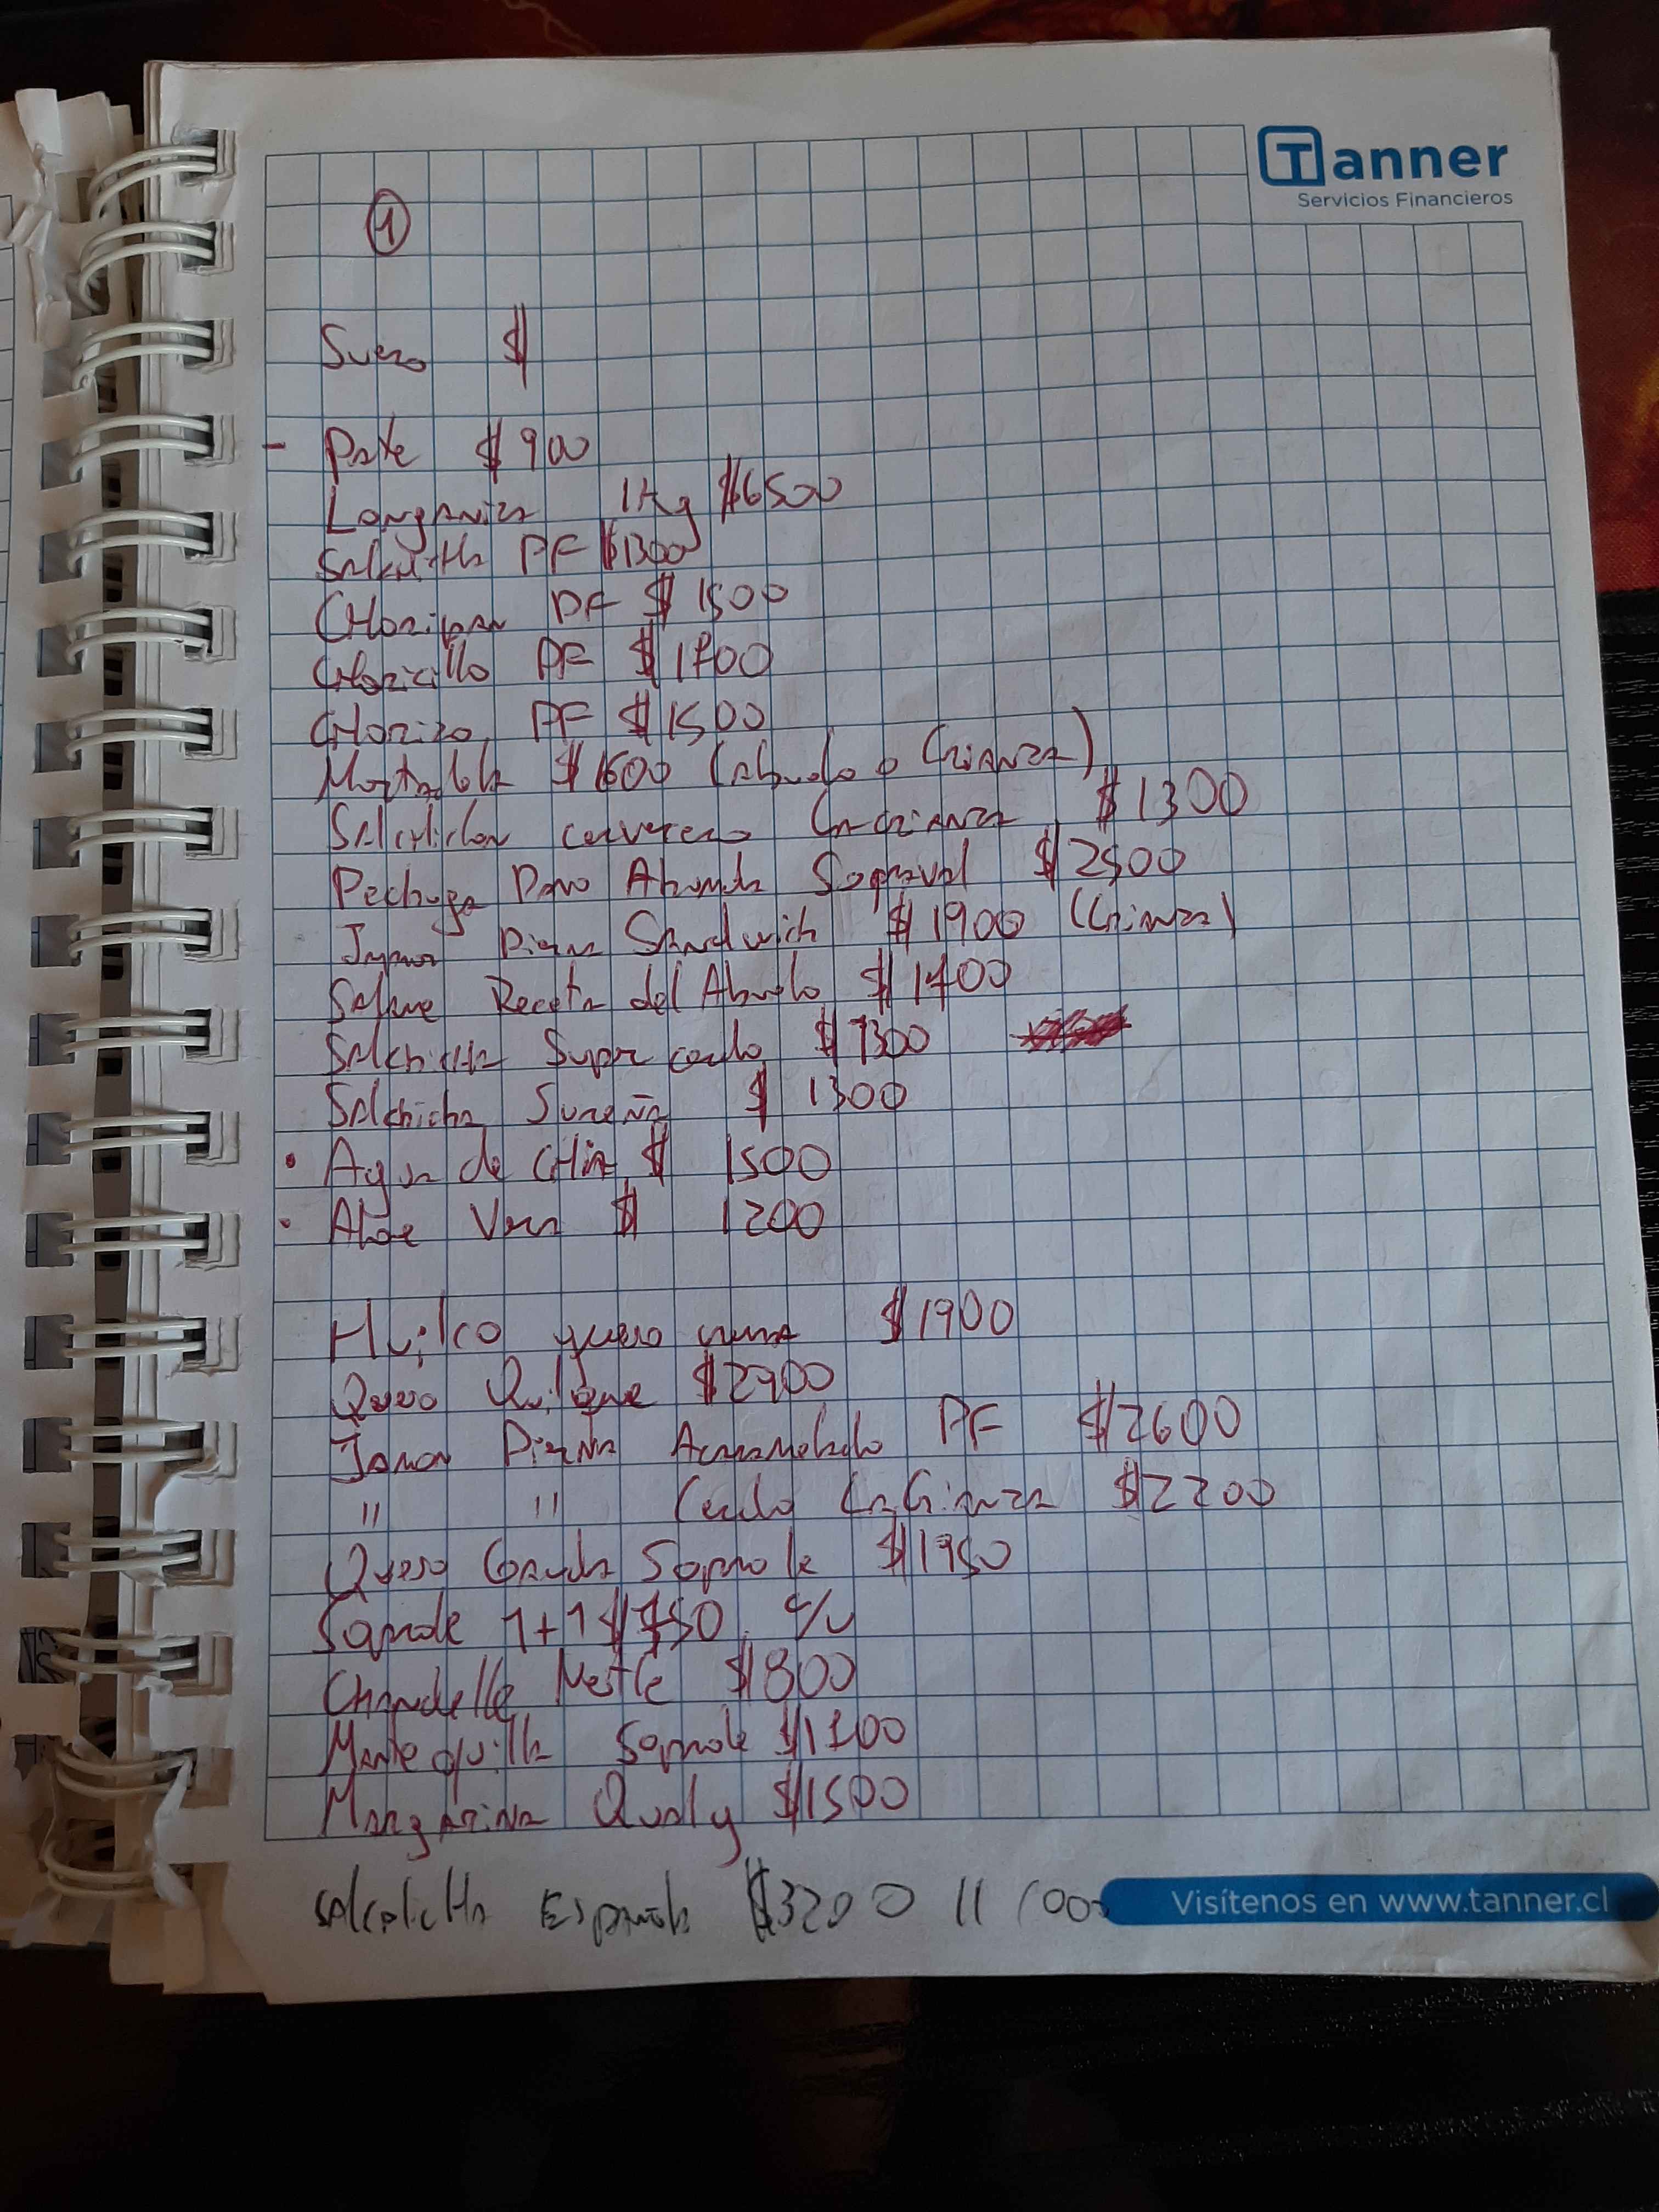 Tanner
Servicios Financieros
1
Suero $
- Pate $900
Longaniza 1Kg $6500
Salchicha PF $1300
CHoripan PF $1500
CHoricillo PF $1700
CHorizo PF $1500
Mortadela $1600 (Abuelo o Crianza)
Salchichon cervecero La Crianza $1300
Pechuga Pavo Ahumada Sopraval $2500
Jamon Pierna Sandwich $1900 (Crianza)
Salame Receta del Abuelo $1400
Salchicha Super cerdo $1300
Salchicha Sureña $1300
• Agua de CHia $ 1500
• Aloe Vera $ 1200
Huilco queso crema $1900
Queso Quilque $2900
Jamon Pierna Acaramelado PF $2600
" " Cerdo La Crianza $2200
Queso Gauda Soprole $1950
Soprole 1+1 $750 c/u
Chandelle Nestle $800
Mantequilla Soprole $1200
Margarina Qualy $1500
Salchicha Española $3200 11 1000
Visítenos en www.tanner.cl